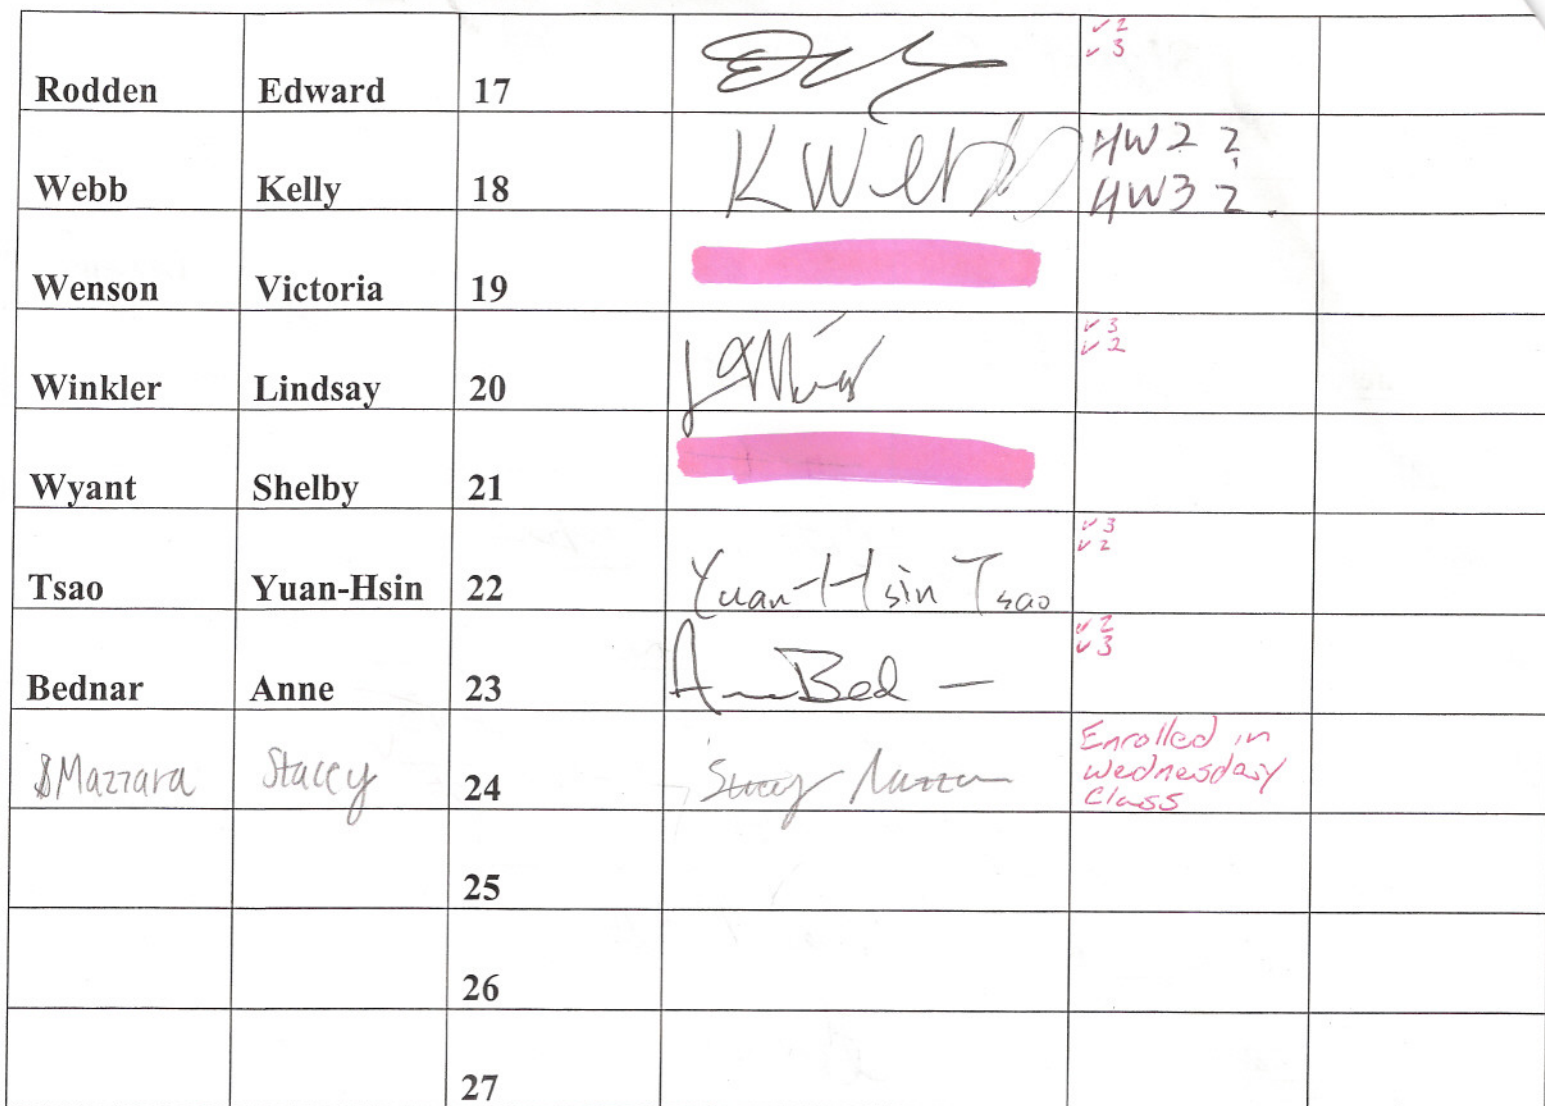 Rodden Edward 17 ✓2
✓3
Webb Kelly 18 K Webb HW2 ?
HW3 ?
Wenson Victoria 19
Winkler Lindsay 20 ✓3
✓2
Wyant Shelby 21
Tsao Yuan-Hsin 22 Yuan-Hsin Tsao ✓3
✓2
Bednar Anne 23 Anne Bed ✓2
✓3
Mazzara Stacey 24 Stacey Mazzara Enrolled in
Wednesday
Class
25
26
27